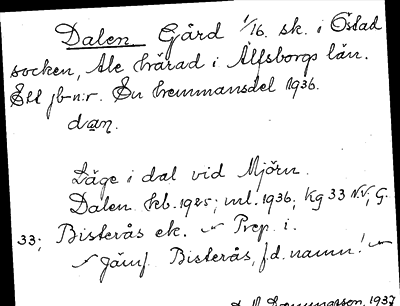 Dalen Gård 1/16. sk. i Östad
socken, Ale härad i Älfsborgs län.
Ett jb-n:r. En hemmansdel 1936.
dạn.
Läge i dal vid Mjörn.
Dalen Feb. 1925; ml. 1936; Kg 33 N.V; G.
33; Bisterås ek. – Prep. i.
– Jämf. Bisterås, f.d. namn! –
1937